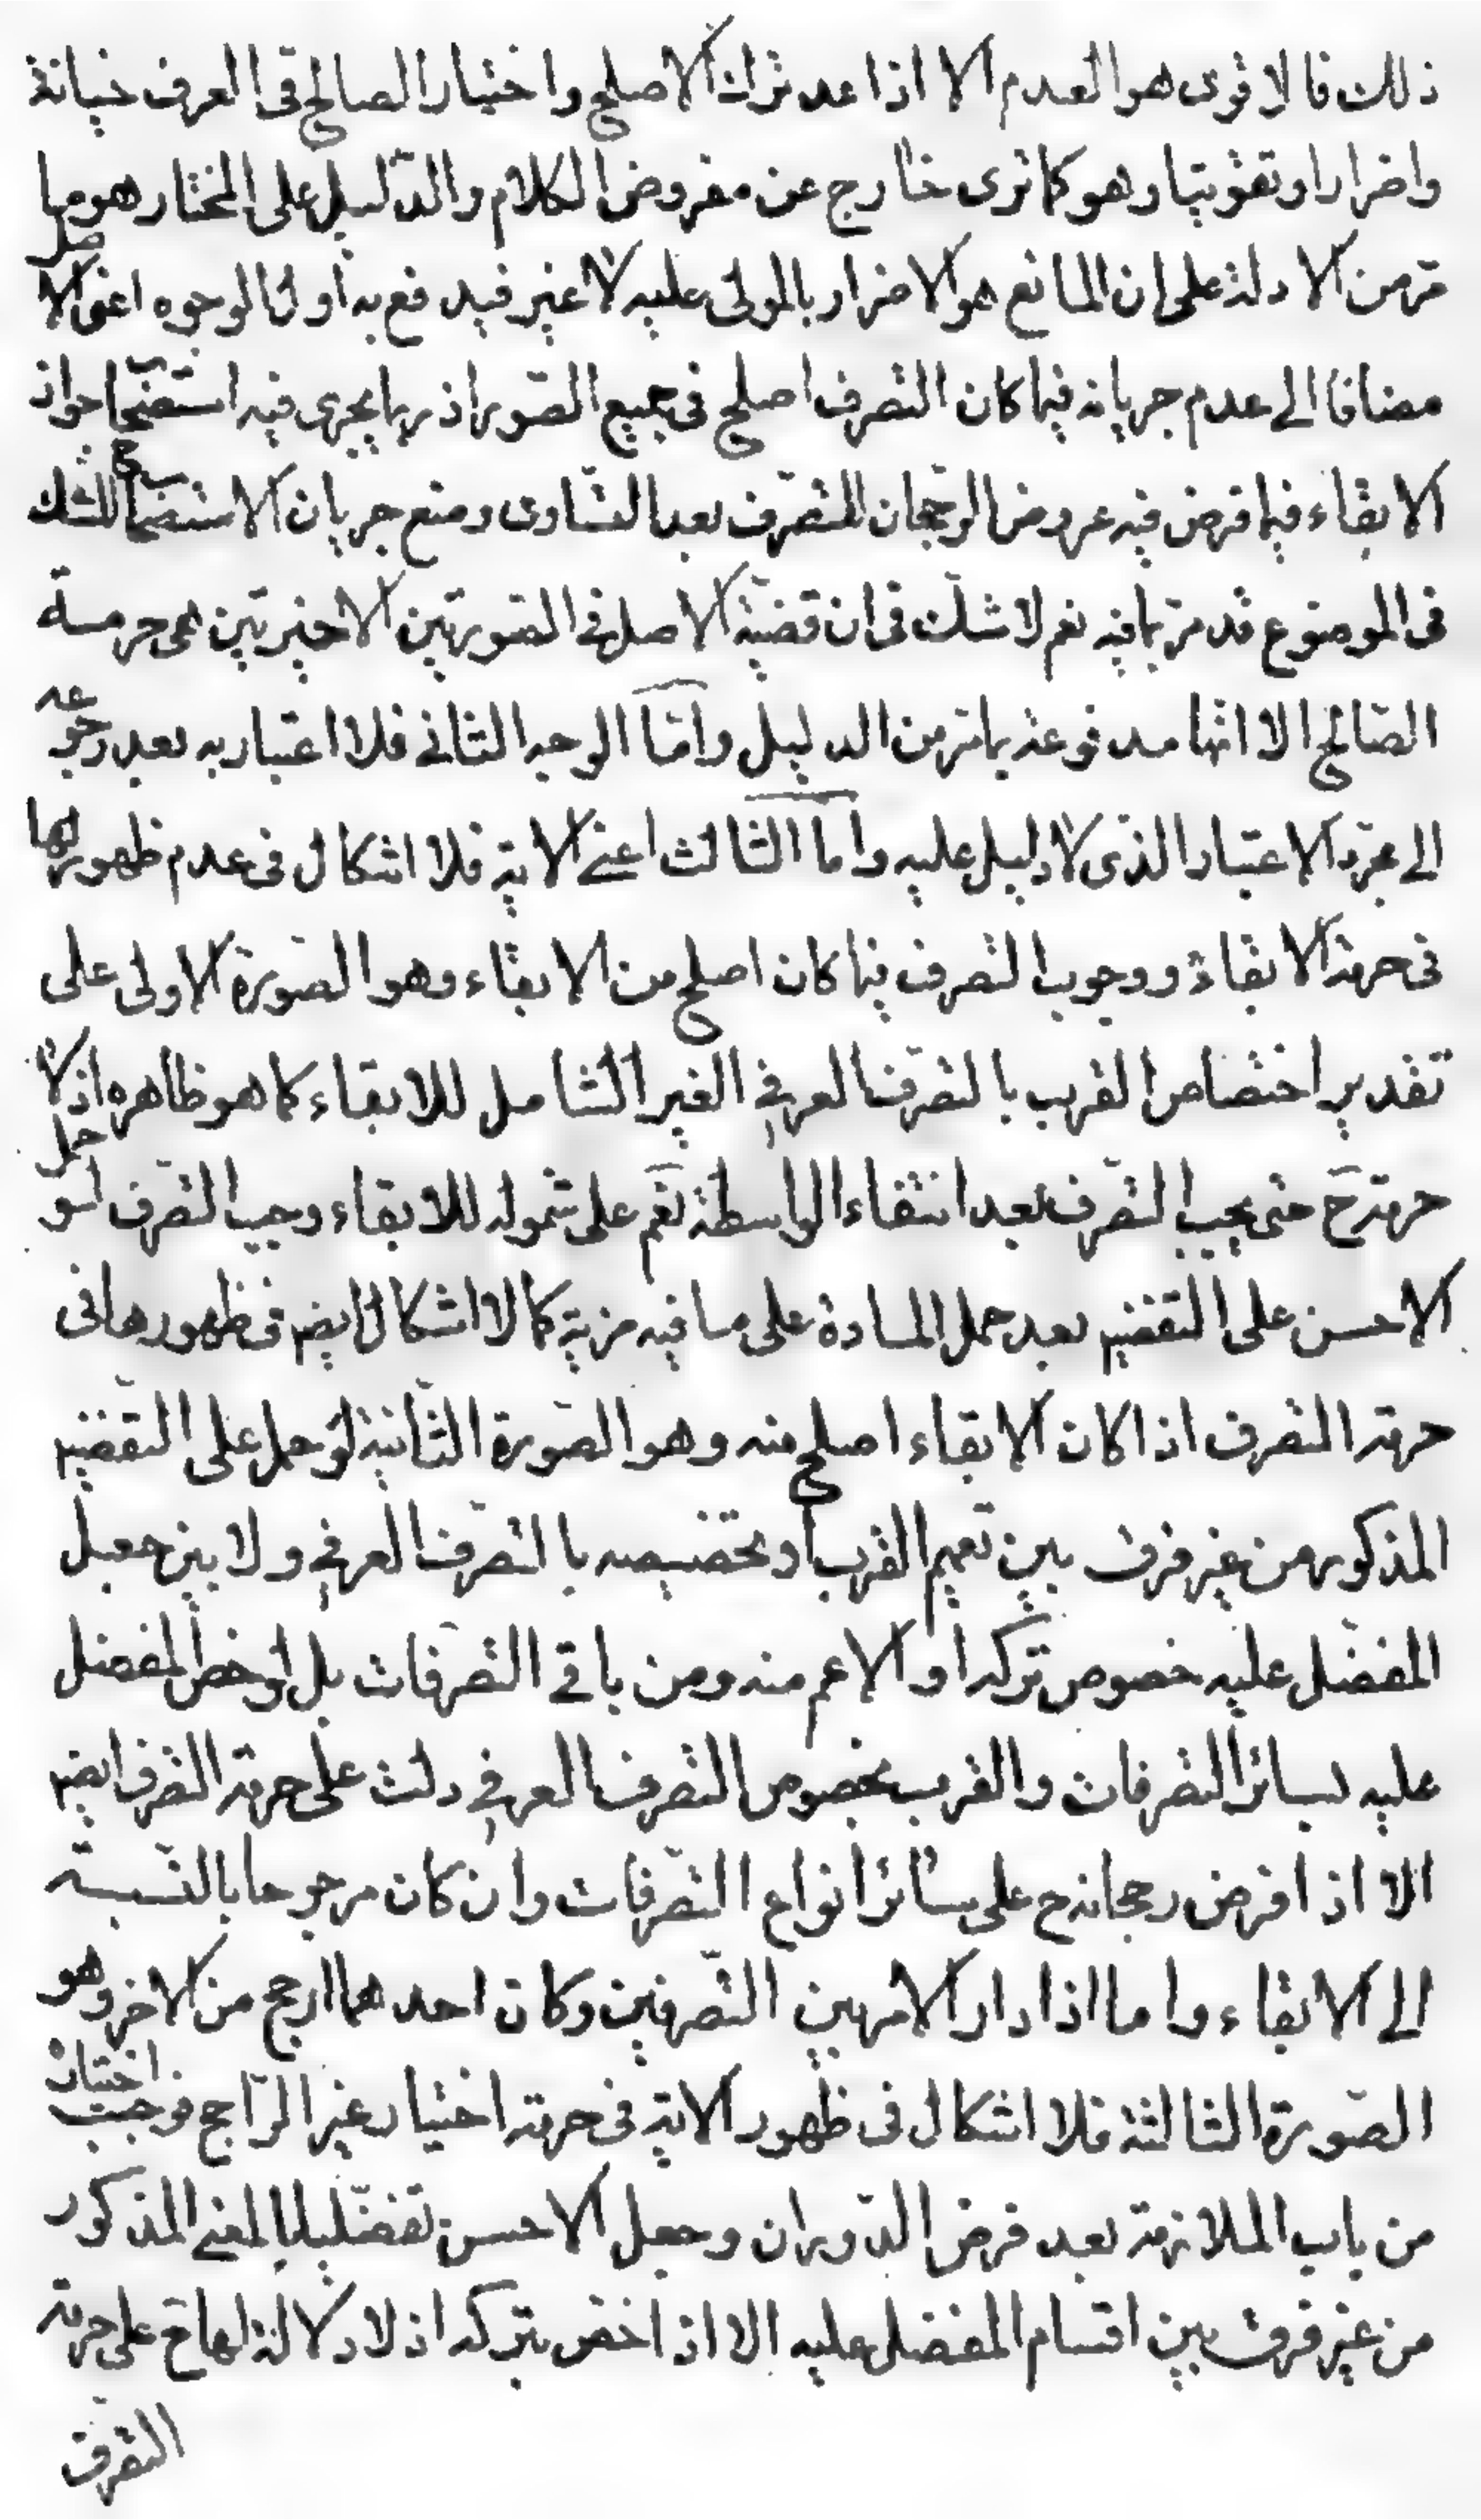 ذلك فالاقوى هو العدم الا اذا عد ترك الاصلح واختيار الصالح فى العرف خيانة
واضرارا وتفويتا وهو كما ترى خارج عن مفروض الكلام والدّليل على المختار هو ما
مرّ من الادلة على ان المانع هو الاضرار بالمولى عليه لا غير فيدفع به اول الوجوه اعنى الاصل
مضافا الى عدم جريانه فيما كان التصرف اصلح فى جميع الصّور اذ ربما يجرى فيه استصحاب جواز
الابقاء فيما فرض فيه عروض الرجحان للتصرّف بعد التساوى ومنع جريان الاستصحاب للشك
فى الموضوع قد مرّ ما فيه نعم لا شك فى ان قضيّة الاصل فى الصّورتين الاخيرتين هى حرمة
الصّالح الا انّها مدفوعة بما مرّ من الدليل وامّا الوجه الثانى فلا اعتبار به بعد رجوعه
الى مجرّد الاعتبار الذى لا دليل عليه واما الثالث اعنى الاية فلا اشكال فى عدم ظهورها
فى حرمة الابقاء ووجوب التصرف فيما كان اصلح من الابقاء وهو الصّورة الاولى على
تقدير اختصاص القرب بالتصرّف العرفى الغير الشامل للابقاء كما هو ظاهره اذ لا
حرمة ح حتى يجب التصرّف بعد انتفاء الواسطة نعم على شموله للابقاء وجب التصرّف لو حمل
الاحسن على التفضيل بعد حمل المادة على ما فيه مزية كما لا اشكال ايضم فى ظهورها فى
حرمة التصرف اذا كان الابقاء اصلح منه وهو الصّورة الثانية لو حمل على التفضيل
المذكور من غير فرق بين تعميم القرب او تخصيصه بالتصرّف العرفى ولا بين جعل
المفضّل عليه خصوص تركه او الاعم منه ومن باقى التصرّفات بل لو خصّ المفضل
عليه بسائر التصرفات والقرب بخصوص التصرف العرفى دلت على حرمة التصرف ايضم
الا اذا فرض رجحانه ح على سائر انواع التصرّفات وان كان مرجوحا بالنّسبة
الى الابقاء واما اذا دار الامر بين التّصرفين وكان احدهما ارجح من الاخر وهو
الصّورة الثالثة فلا اشكال فى ظهور الاية فى حرمة اختيار غير الرّاجح فوجب اختياره
من باب الملازمة بعد فرض الدّوران وجعل الاحسن تفضيليا بالمعنى المذكور
من غير فرق بين اقسام المفضل عليه الا اذا اختص بتركه اذ لا دلالة لها ح على حرمة
التصرّف